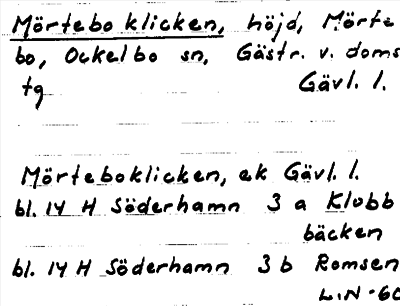 Mörtebo klicken, höjd, Mörte
bo, Ockelbo sn, Gästr. v. doms
tg Gävl. l.
Mörteboklicken, ek Gävl. l.
bl. 14 H Söderhamn 3 a Klubb
bäcken
bl. 14 H Söderhamn 3 b Romsen
L.N -60